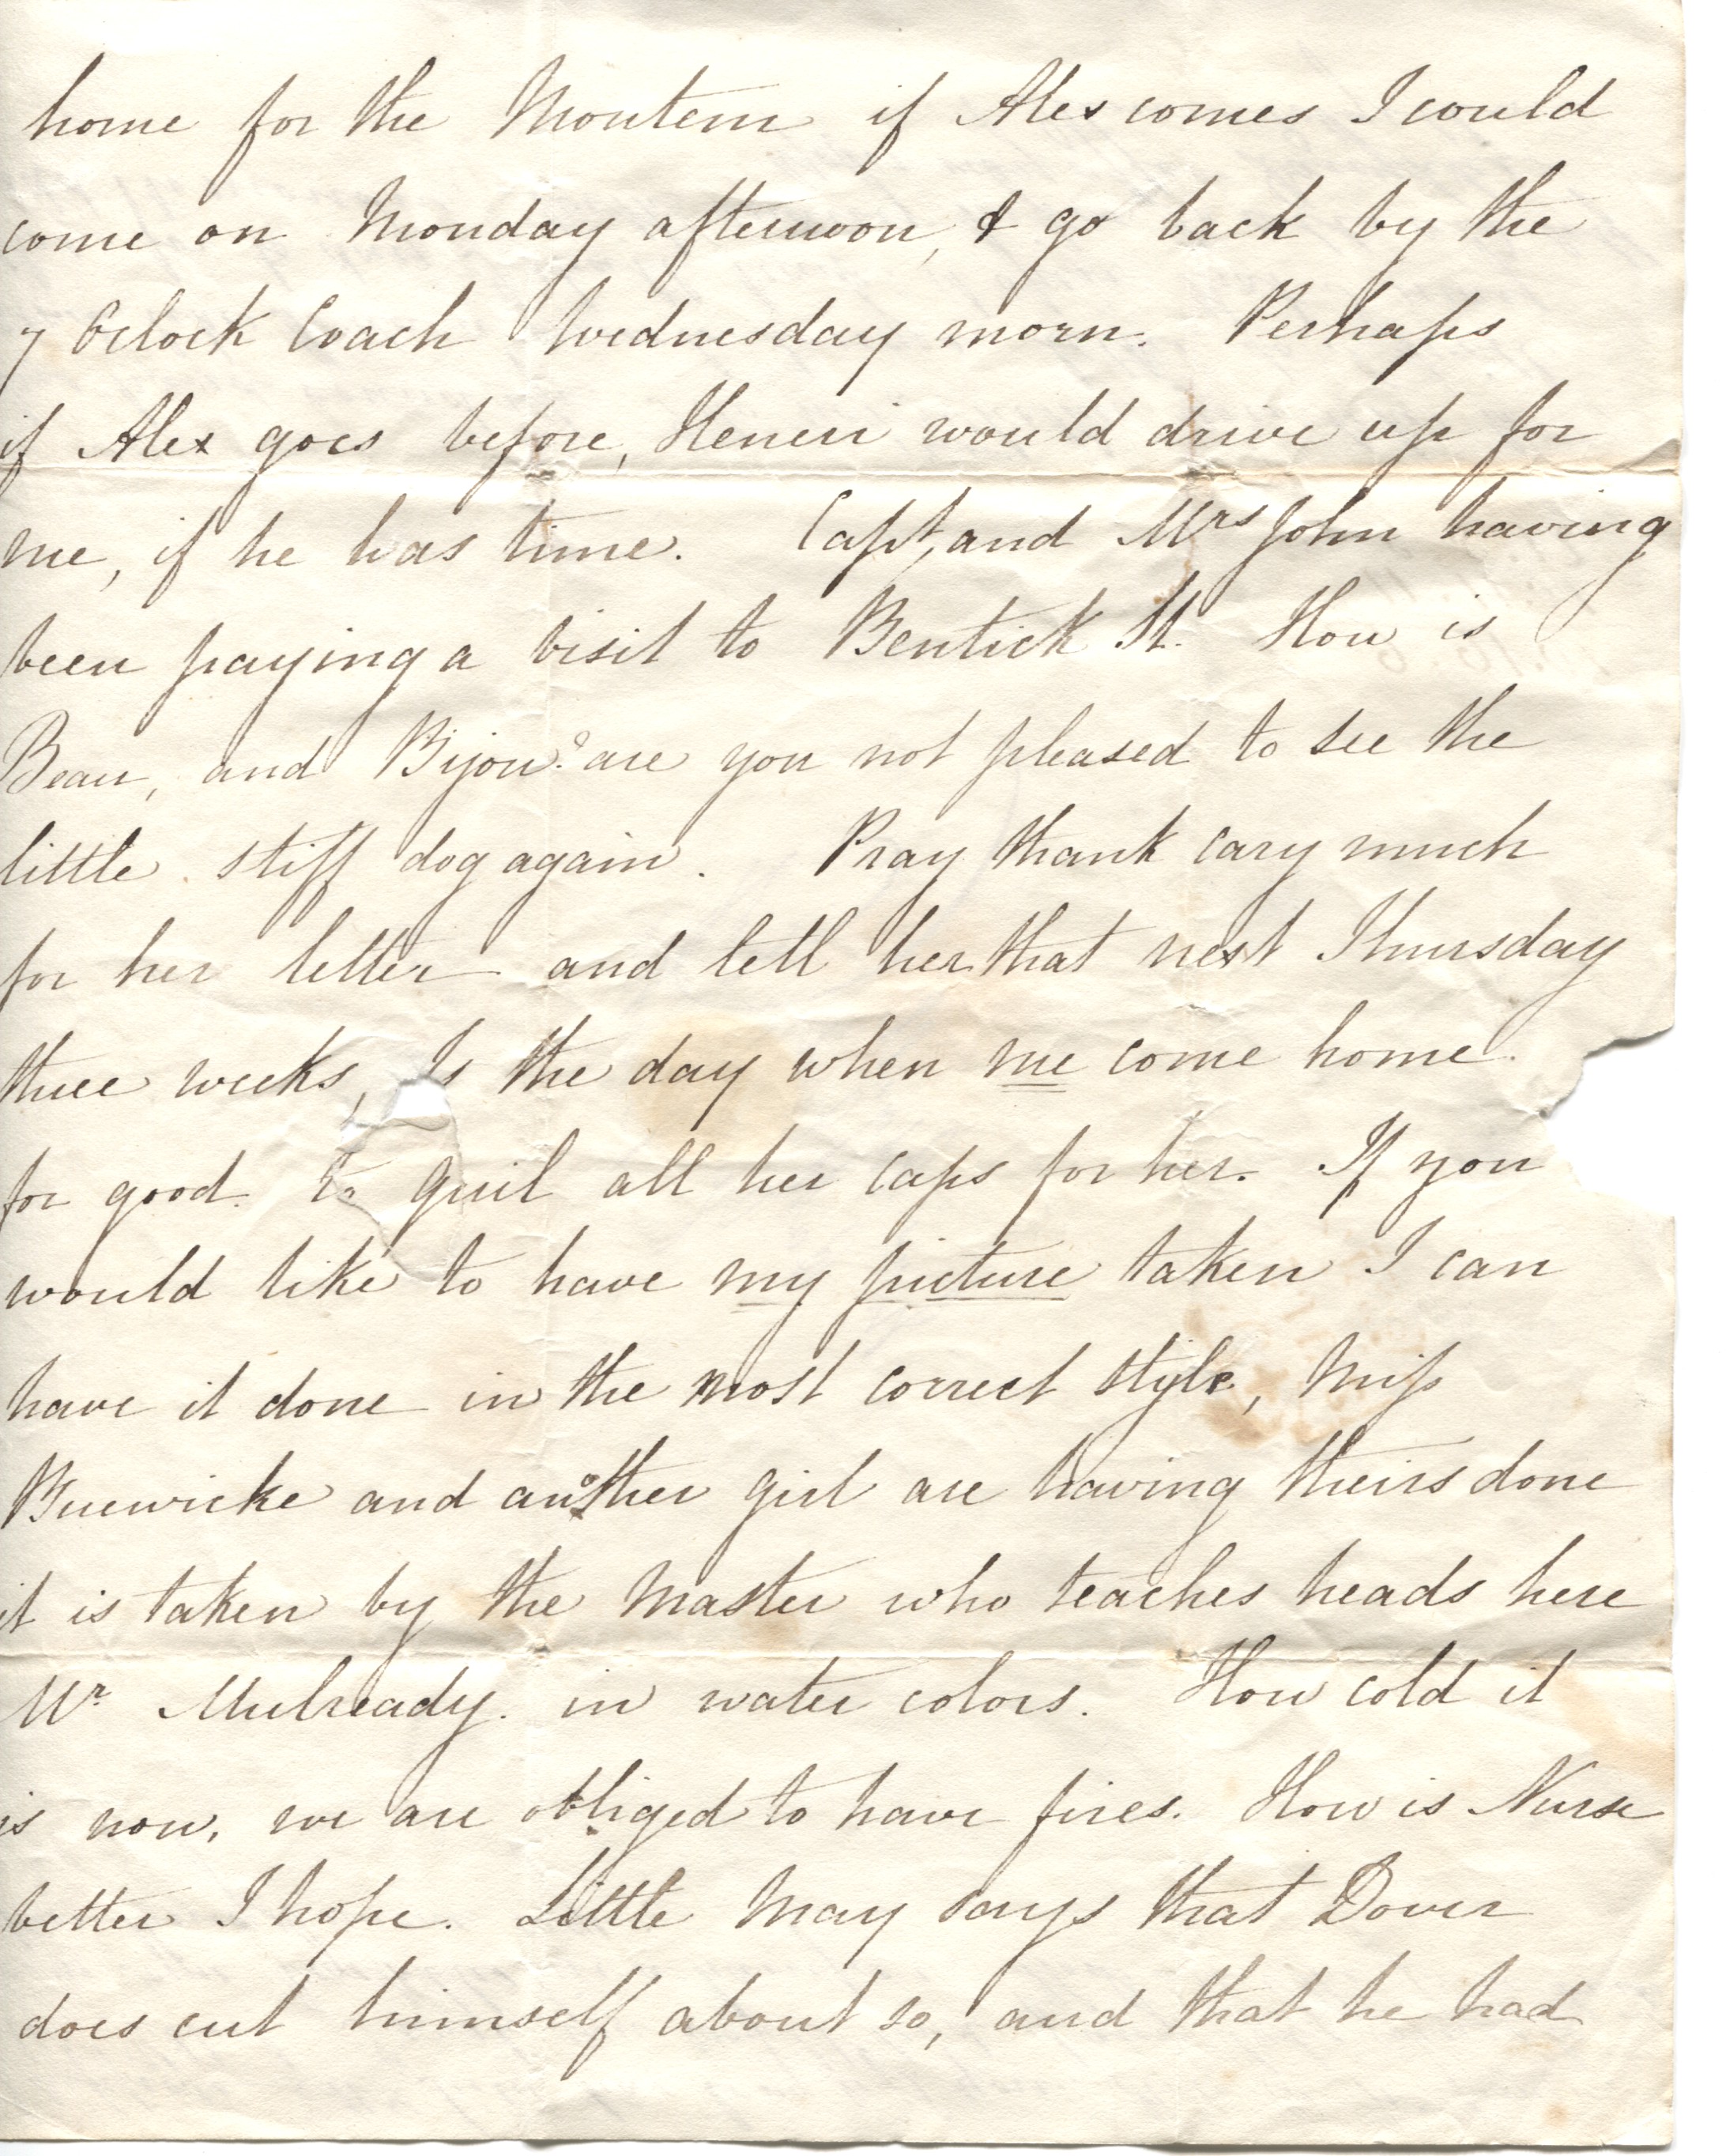 home for the Montem if Alex comes I could
come on Monday afternoon, & go back by the
7 Oclock Coach Wednesday morn. Perhaps
if Alex goes before, Heneri would drive up for
me, if he has time. Capt, and Mrs John having
been paying a visit to Bentick St. How is
Beau, and Bijou? are you not pleased to see the
little stiff dog again. Pray thank Cary much
for her letter and tell her that next Thursday
three weeks, Is the day when me come home.
for good. to quil all her caps for her. If you
would like to have my picture taken I can
have it done in the most correct style, Miss
and another girl are having theirs done
it is taken by the Master who teaches heads here
Mr Mulready. in water colors. How cold it
is now, we are obliged to have fires. How is Nurse
better I hope. Little May says that Dover
does cut himself about so, and that he had